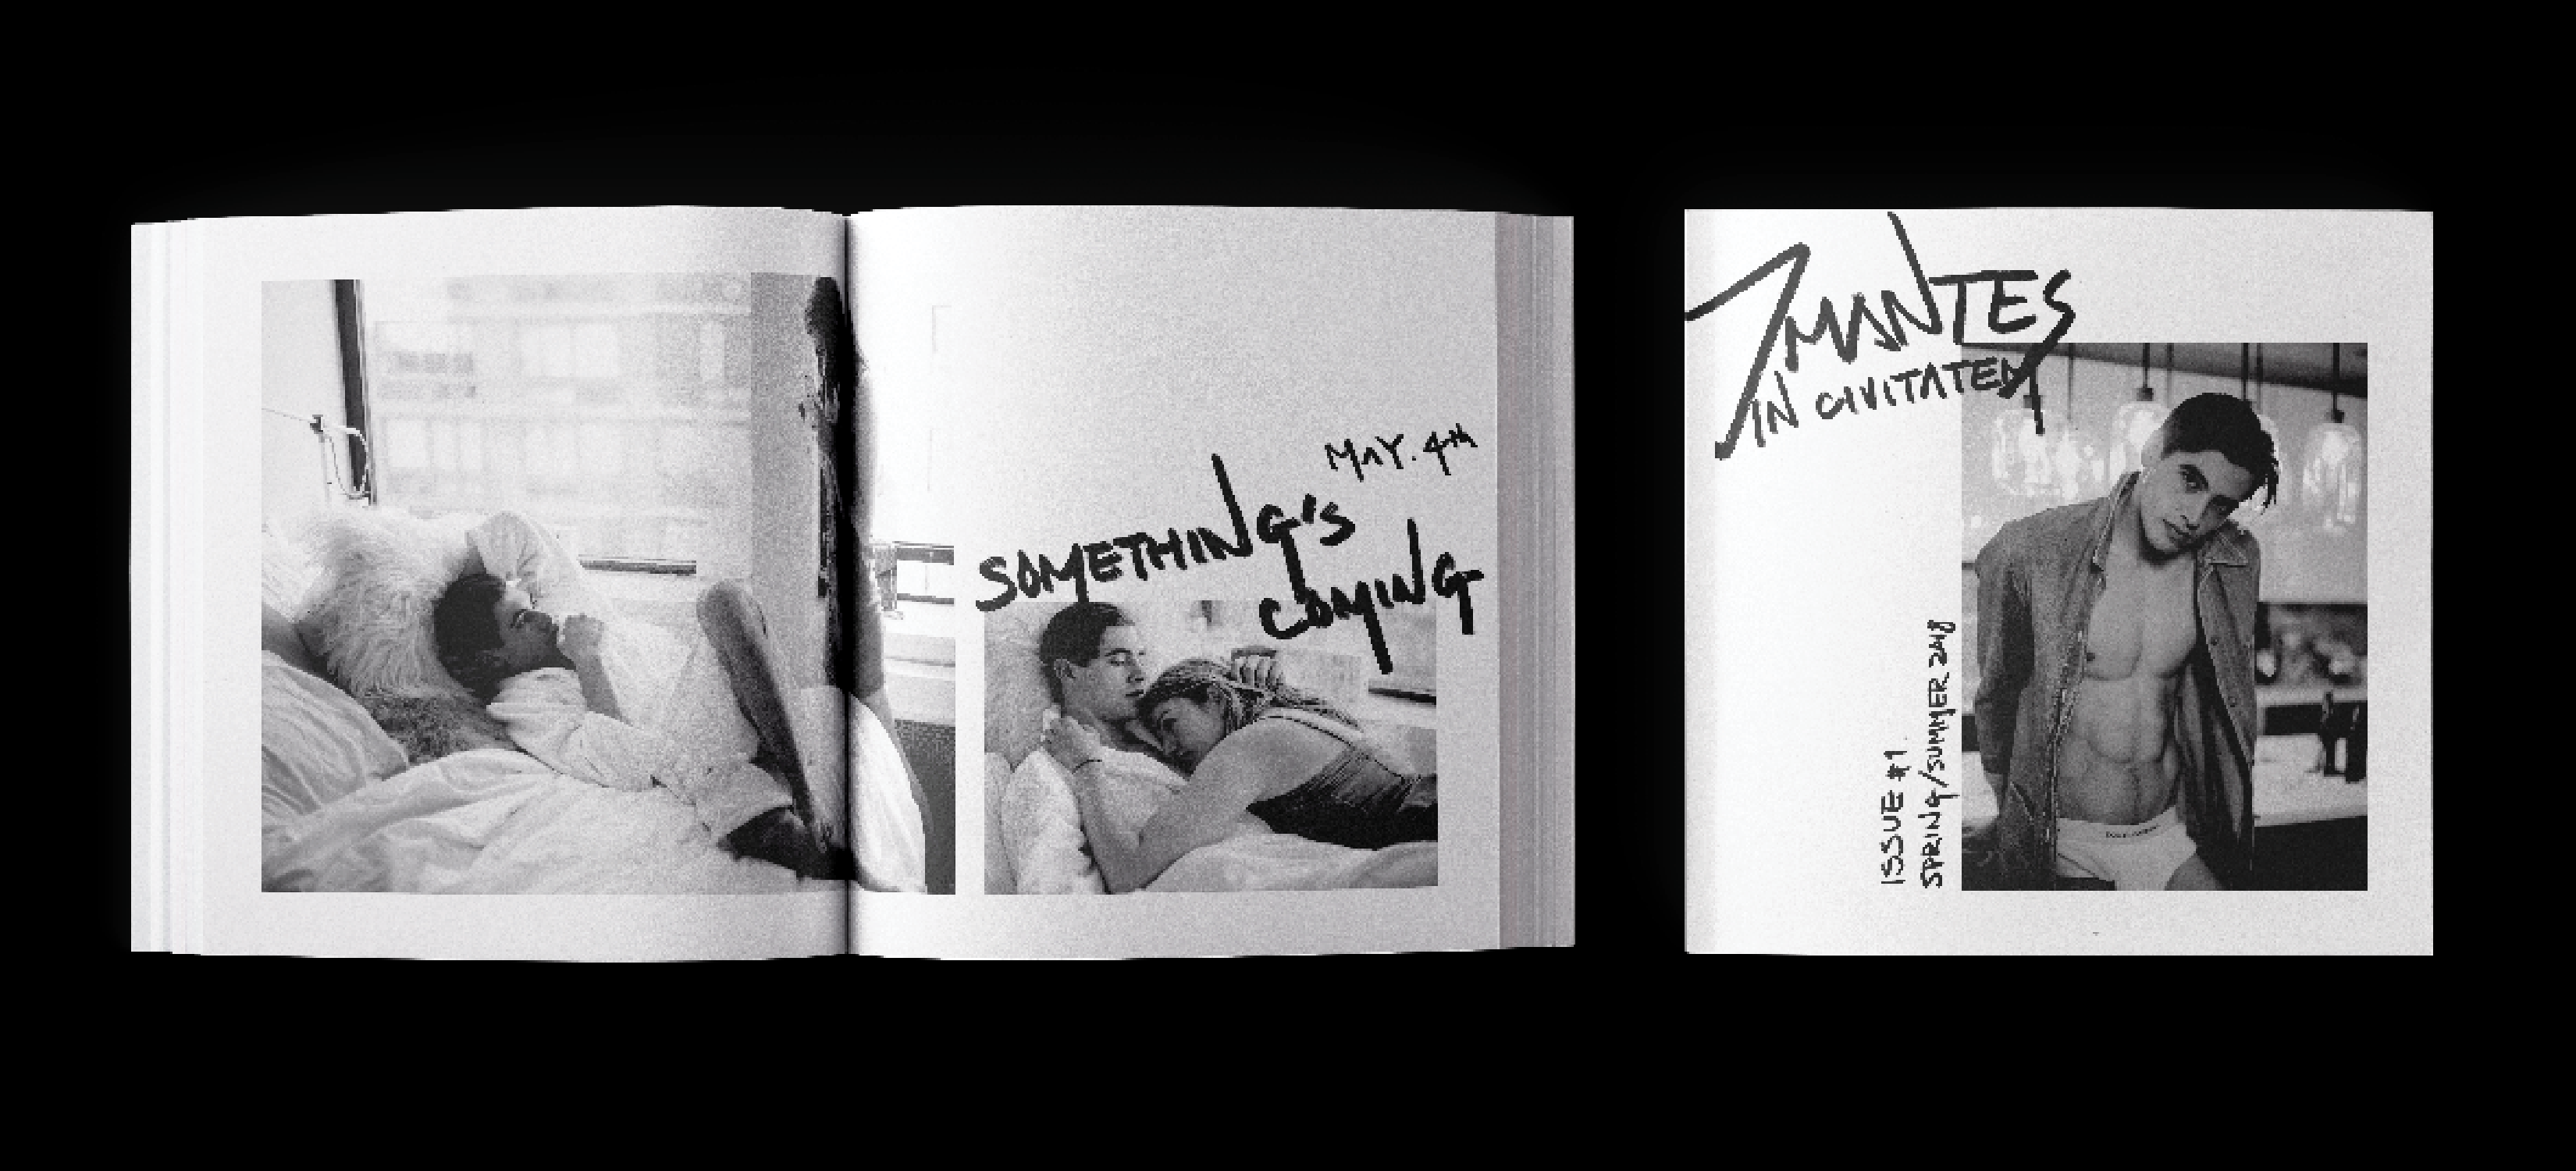 MAY. 4th
SOMETHING'S
COMING
AMANTES
IN CIVITATEM
ISSUE #1
SPRING/SUMMER 2018